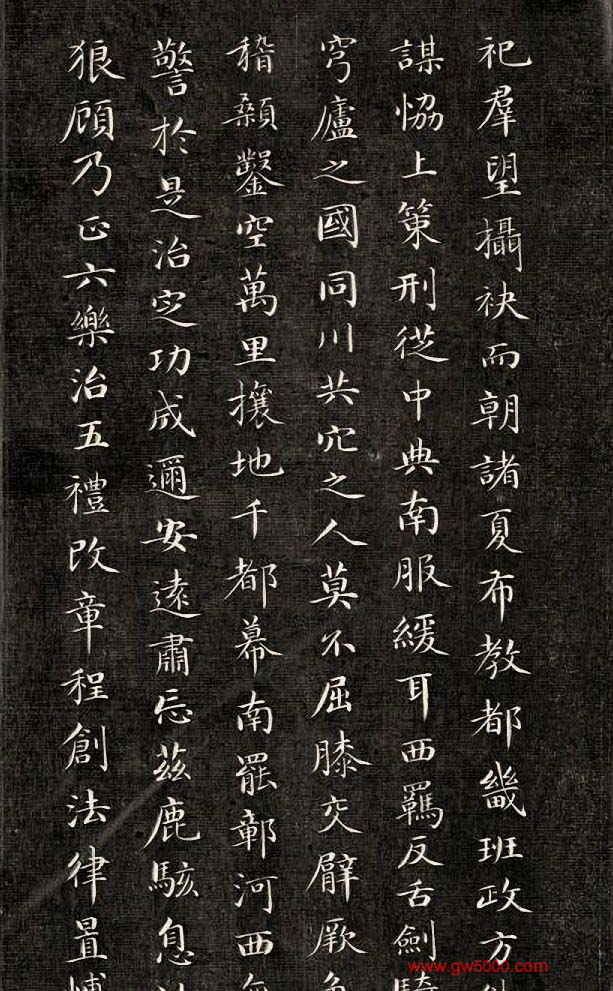 祀羣望攝袂而朝諸夏布教都畿班政方
謀恊上策刑從中典南服緩耳西羈反舌劍騎
穹廬之國同川共穴之人莫不屈膝交臂厥角
稽顙鑿空萬里攘地千都幕南罷鄣河西無
警於是治定功成邇安遠肅忘茲鹿駭息此
狼顧乃正六樂治五禮改章程創法律置博
www.gw5000.com